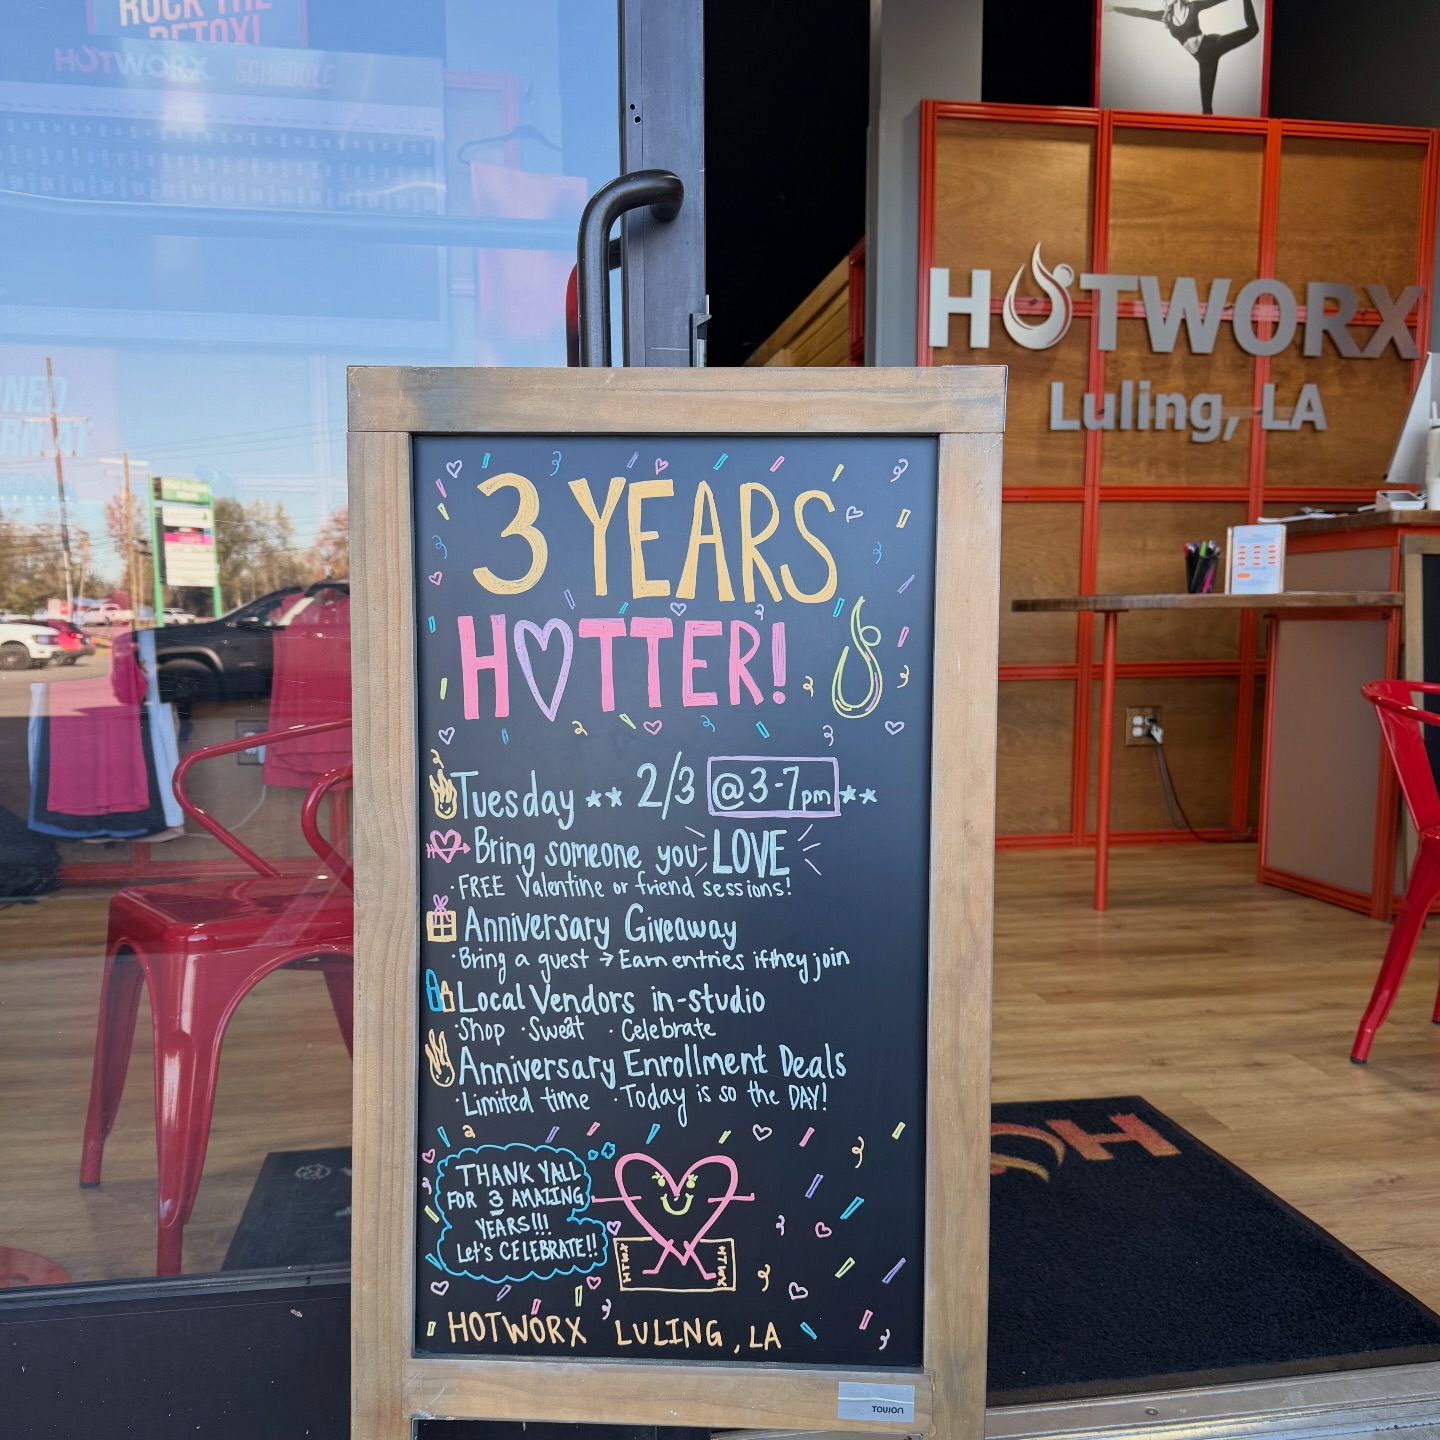 ROCK THE
DETOX!
HOTWORX SCHEDULE
HOTWORX
Luling, LA
3 YEARS
HOTTER!
Tuesday ** 2/3 @3-7pm **
Bring someone you LOVE
·FREE Valentine or friend sessions!
Anniversary Giveaway
·Bring a guest → Earn entries if they join
Local Vendors in-studio
·Shop ·Sweat ·Celebrate
Anniversary Enrollment Deals
·Limited time ·Today is so the DAY!
THANK YALL
FOR 3 AMAZING
YEARS!!!
Let's CELEBRATE!!
HTWX
HOTWORX LULING, LA